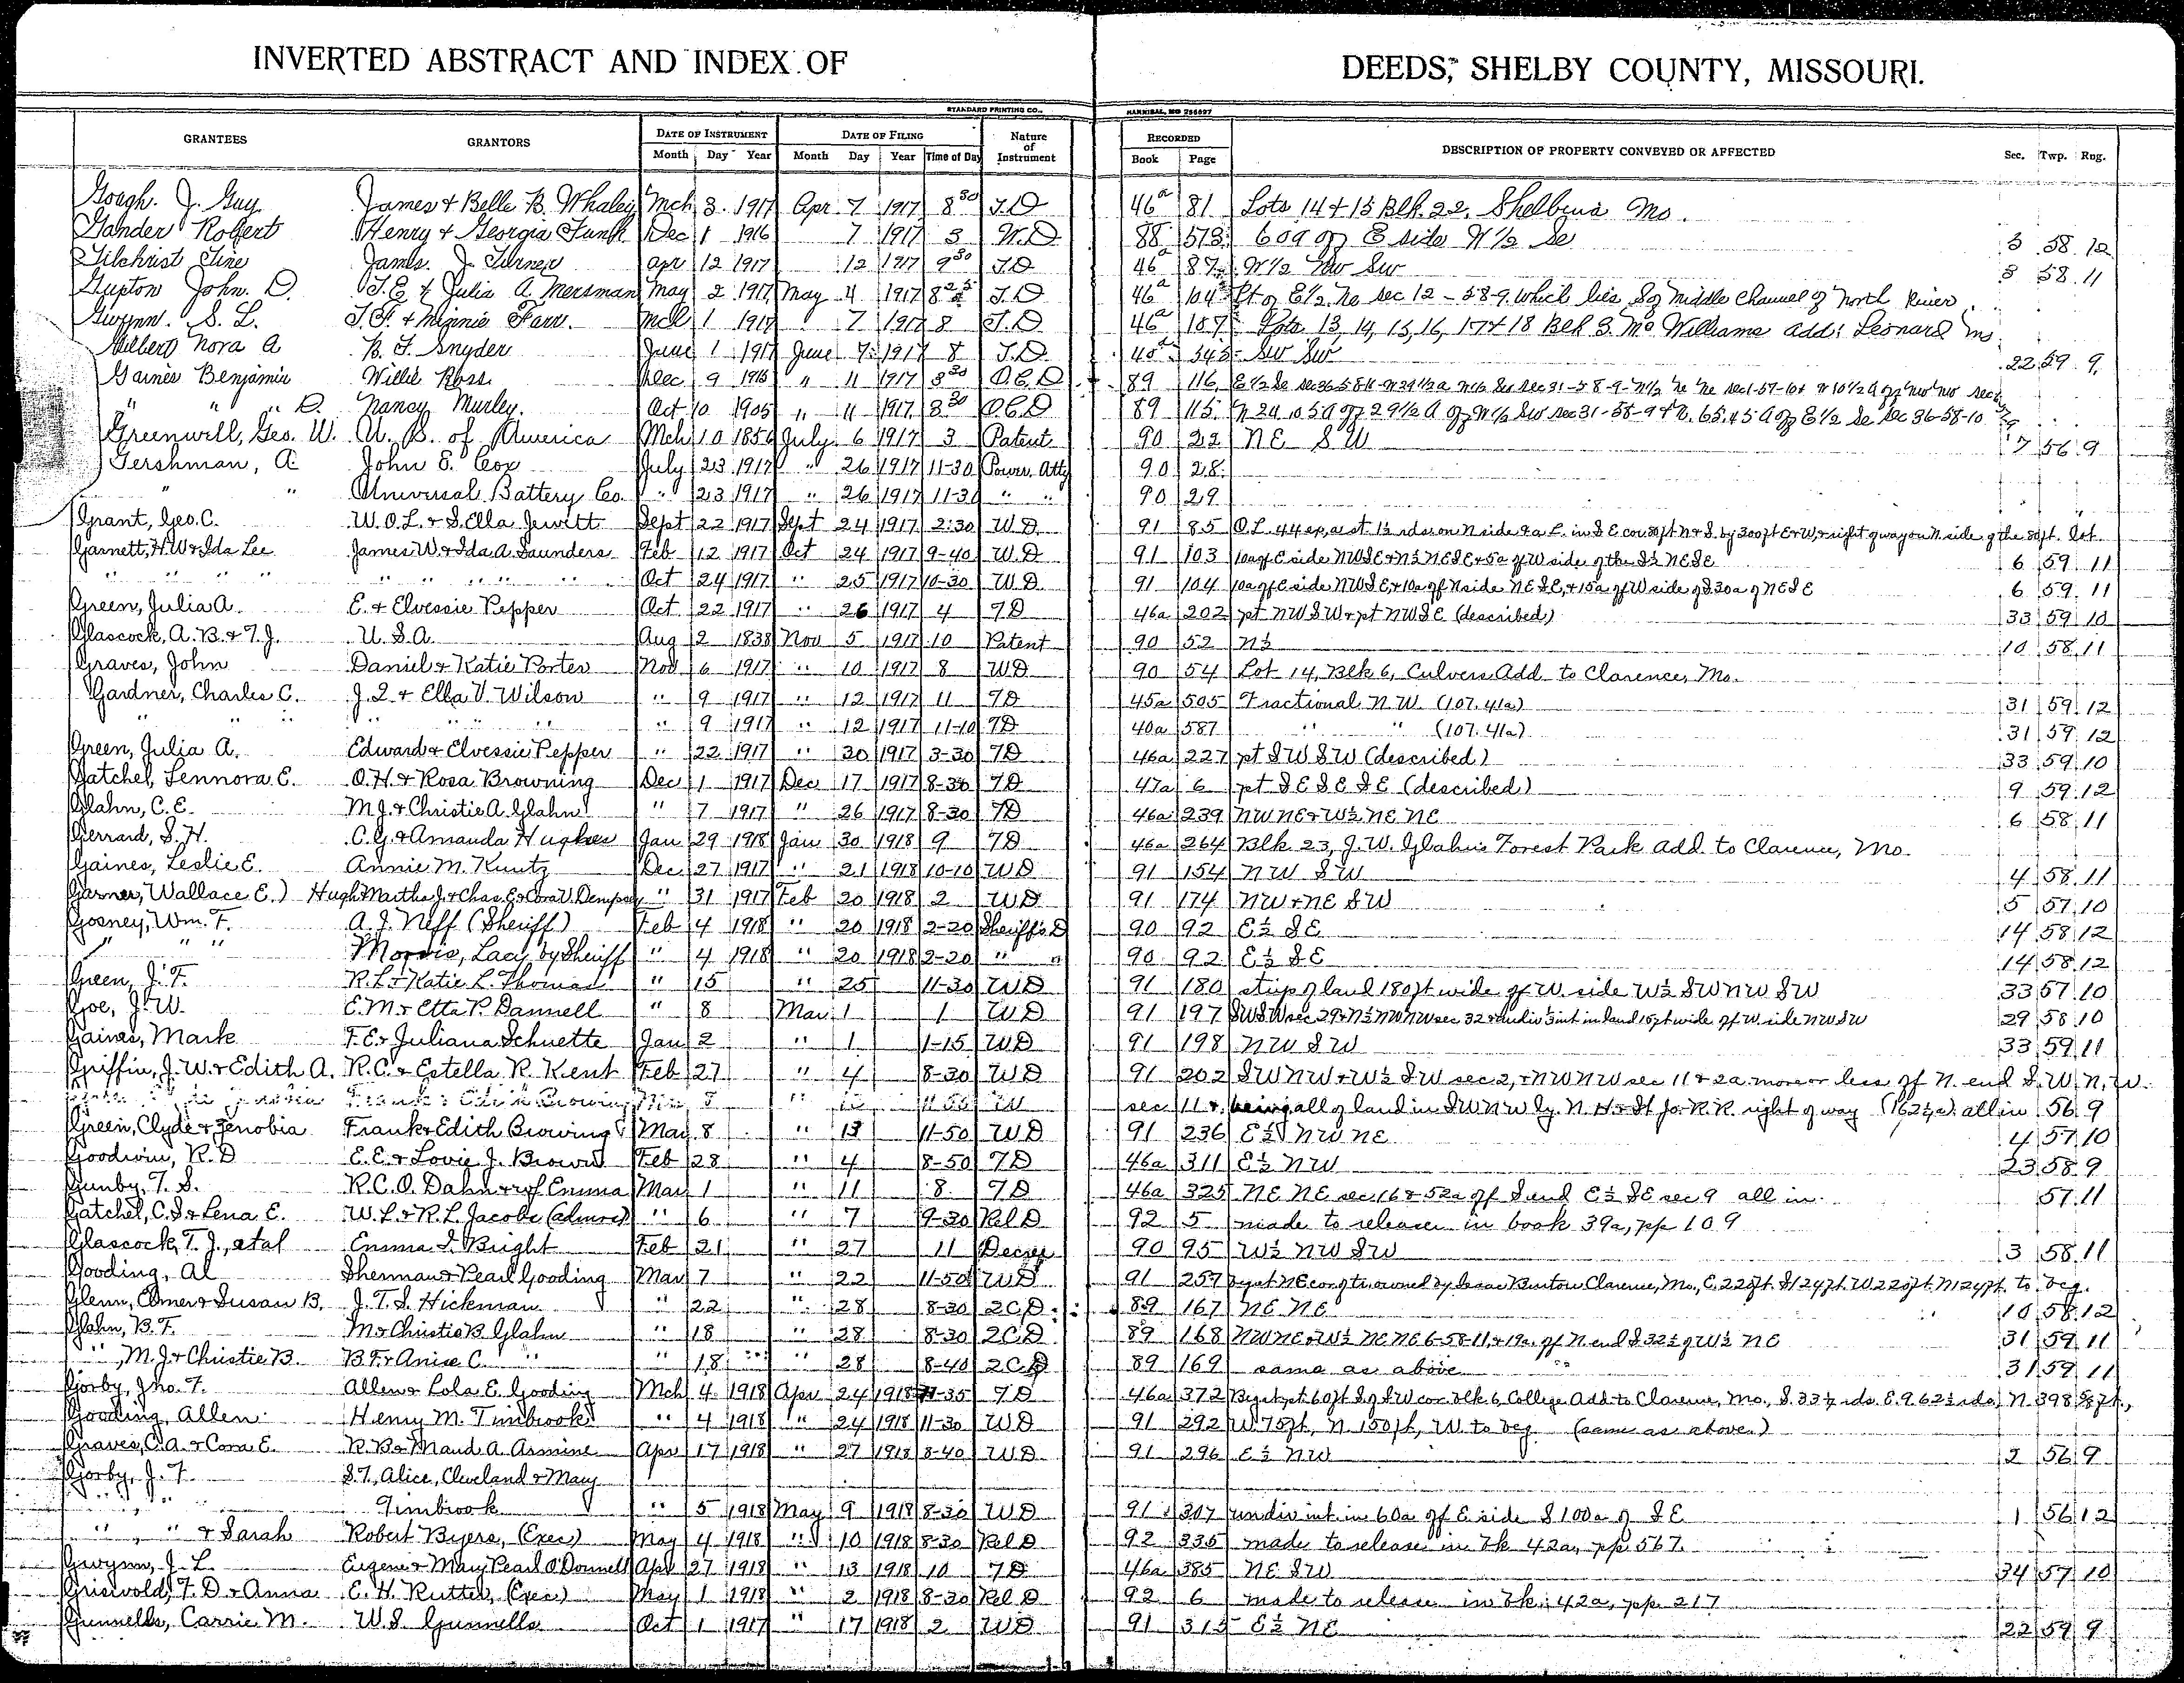 INVERTED ABSTRACT AND INDEX OF DEEDS, SHELBY COUNTY, MISSOURI.
STANDARD PRINTING CO., HANNIBAL, MO
GRANTEES GRANTORS DATE OF INSTRUMENT DATE OF FILING Nature of Instrument RECORDED DESCRIPTION OF PROPERTY CONVEYED OR AFFECTED Sec. Twp. Rng.
Month Day Year Month Day Year Time of Day Book Page
Gough. J. Guy. James & Belle B. Whaley Mch 3. 1917 Apr 7 1917 8 30 T.D 46a 81 Lots 14 & 15 Blk. 22. Shelbina Mo.
Gander Robert Henry & Georgia Funk Dec 1 1916 7 1917 3 W.D 88 573 60a off E side W 1/2 Se 3 58 12
Gilchrist Tine James. J. Turner Apr 12 1917 12 1917 9 30 T.D 46a 87 W 1/2 Nw Sw 8 58 11
Gupton John. D. T.E & Julia A Mersman May 2 1917 May 4 1917 8 25 T.D 46a 104 Pt of E 1/2 Ne sec 12 - 58-9 which lies S of Middle Channel of North River
Gwynn. S. L. T. F. & Minnie Farr. Mch 1 1917 7 1917 8 T.D 46a 107 Lots 13, 14, 15, 16, 17 & 18 Blk 3. Mc Williams add: Leonard Mo
Gilbert Nora A B. F. Snyder June 1 1917 June 7 1917 8 T.D. 45a 343 Sw Sw 22 59 9
Gaines Benjamin Willie Ross Dec 9 1916 " 11 1917 8 30 Q.C.D 89 116
" " D. Nancy Murley. Oct 10 1905 " 11 1917 8 30 Q.C.D 89 115 N 24.05a off 29 1/2 A off N 1/2 Sw sec 31-58-9 & 65.45 A off E 1/2 Se Sec 36-58-10
Greenwell, Geo. W. U. S. of America Mch 10 1856 July 6 1917 3 Patent 90 22 NE SW 7 56 9
Gershman, A John E. Cox July 23 1917 " 26 1917 11-30 Power. Atty 90 28
" " Universal Battery Co. " 23 1917 " 26 1917 11-30 " " 90 29
Grant, Geo. C. W. O. L. & S. Ella Jewitt Sept 22 1917 Sept 24 1917 2:30 W.D. 91 85 O.L. 44 ex, a st. 1½ rds on N side & a L. in SE cor 80ft N & S by 300ft E & W, & right of way on N side of the 80ft. lot
Garnett, H.W. & Ida Lee James W. & Ida A. Saunders Feb 12 1917 Oct 24 1917 9-40 W.D 91 103 10a off E side NWSE & N½ NESE & 5a off W side of the S½ NESE 6 59 11
" " " " " " " " Oct 24 1917 " 25 1917 10-30 W.D 91 104 10a off E side NWSE, & 10a off N side NESE, & 15a off W side of S 30a of NESE 6 59 11
Green, Julia A. E. & Elvessie Pepper Oct 22 1917 " 26 1917 4 TD 46a 202 pt NWSW & pt NWSE (described) 33 59 10
Glascock, A. B. & T. J. U. S. A. Aug 2 1838 Nov 5 1917 10 Patent 90 52 N½ 10 58 11
Graves, John Daniel & Katie Porter Nov 6 1917 " 10 1917 8 WD 90 54 Lot 14, Blk 6, Culvers Add to Clarence, Mo.
Gardner, Charles C. J. Q. & Ella V. Wilson " 9 1917 " 12 1917 11 TD 45a 505 Fractional N.W. (107.41a) 31 59 12
" " " " " " " " 9 1917 " 12 1917 11-10 TD 40a 587 " " (107.41a) 31 59 12
Green, Julia A. Edward & Elvessie Pepper " 22 1917 " 30 1917 3-30 TD 46a 227 pt SW SW (described) 33 59 10
Gatchel, Lennora E. O. H. & Rosa Browning Dec 1 1917 Dec 17 1917 8-30 TD 47a 6 pt SE SE SE (described) 9 59 12
Glahn, C. E. M J. & Christie A. Glahn " 7 1917 " 26 1917 8-30 TD 46a 239 NW NE & W½ NE NE 6 58 11
Gerrard, S. H. C. G. & Amanda Hughes Jan 29 1918 Jan 30 1918 9 TD 46a 264 Blk 23, J. W. Glahn's Forest Park Add. to Clarence, Mo.
Gaines, Leslie E. Annie M. Kuntz Dec 27 1917 " 21 1918 10-10 WD 91 154 NW SW 4 58 11
Garner, Wallace E.) Hugh Martha J. & Chas. E & Cora V. Dempsey " 31 1917 Feb 20 1918 2 WD 91 174 NW & NE SW 5 57 10
Gosney, Wm. F. A. J. Neff (Sheriff) Feb 4 1918 " 20 1918 2-20 Sheriff's D 90 92 E½ SE 14 58 12
" " " Morris, Lacy by Sheriff " 4 1918 " 20 1918 2-20 " " 90 92 E½ SE 14 58 12
Green, J. F. R. L. & Katie L. Thomas " 15 " 25 11-30 WD 91 180 strip of land 180 ft wide off W. side W½ SW NW SW 33 57 10
Goe, J. W. E. M. & Etta P. Dannell " 8 Mar 1 1 WD 91 197 SWSW sec 29 & N½ NWNW sec 32 & undiv ⅓ int in land 15ft wide off W. side NWSW 29 58 10
Gaines, Mark F. E. & Juliana Schuette Jan 2 " 1 1-15 WD 91 198 NW SW 33 59 11
Griffin, J. W. & Edith A. R. C. & Estella R. Kent Feb 27 " 4 8-30 WD 91 202 SW NW & W½ SW sec 2, & NW NW sec 11 & 2a more or less off N. end S.W. N.W.
sec 11 &, being all of land in SWNW ly. N. H & St Jo. R.R. right of way (162½a) all in 56 9
Green, Clyde & Zenobia Frank & Edith Browing Mar 8 " 13 11-50 WD 91 236 E½ NW NE 4 57 10
Goodwin, R. D E. E. & Lovie J. Brown Feb 28 " 4 8-50 TD 46a 311 E½ NW 23 58 9
Gunby, T. S. R. C. O. Dahn & wf Emma Mar 1 " 11 8 TD 46a 325 NE NE sec 16 & 52a off S end E½ SE sec 9 all in 57 11
Gatchel, C. S & Lena E. W. L. & R. L. Jacobs (admors) " 6 " 7 9-30 Rel D 92 5 made to release in book 39a, pp 109
Glascock, T. J., et al Emma I. Bright Feb 21 " 27 11 Decree 90 95 W½ NW SW 3 58 11
Gooding, Al Sherman & Pearl Gooding Mar 7 " 22 11-50 WD 91 257 beg at NE cor of tr. owned by Isaac Benton Clarence, Mo., E. 225ft. S 124ft. W 225ft. N 124ft. to beg.
Glenn, Elmer & Susan B. J. T. S. Hickman " 22 " 28 8-30 QCD 89 167 NE NE 10 58 12
Glahn, B. F. M & Christie B. Glahn " 18 " 28 8-30 QCD 89 168 NWNE & W½ NE NE 6-58-11, & 19a. off N. end S 32½ of W½ NE 31 59 11
" , M. J. & Christie B. B. F. & Anise C. " " 18 " 28 8-40 QCD 89 169 same as above " 31 59 11
Gorby, Jno. F. Allen & Lola E. Gooding Mch 4 1918 Apr 24 1918 11-35 TD 46a 372 Beg at pt 60ft S. of SW cor blk 6 College Add to Clarence, Mo., S. 33½ rds. E. 9.62½ rds, N 398⅝ ft.,
Gooding, Allen Henry M. Timbrook " 4 1918 " 24 1918 11-30 WD 91 292 W. 75ft, N. 150ft, W. to beg (same as above.)
Graves, C. A. & Cora E. R. B. & Maud A. Asmine Apr 17 1918 " 27 1918 8-40 WD 91 296 E½ NW 2 56 9
Gorby, J. F. S. T., Alice, Cleveland & Mary
" " Timbrook " 5 1918 May 9 1918 8-30 WD 91 307 undiv int. in 60a off E side S 100a of SE 1 56 12
" " " & Sarah Robert Byers, (Exec) May 4 1918 " 10 1918 8-30 Rel D 92 335 made to release in Bk 42a, pp 567.
Gwynn, J. L. Eugene & Mary Pearl O'Donnell Apr 27 1918 " 13 1918 10 TD 46a 385 NE SW 34 57 10
Griswold, F. D & Anna E. H. Rutter, (Exec) May 1 1918 " 2 1918 8-30 Rel D 92 6 made to release in Bk. 42a, pp 217
Gunnells, Carrie M. W. S. Gunnells Oct 1 1917 " 17 1918 2 WD 91 315 E½ NE 22 59 9